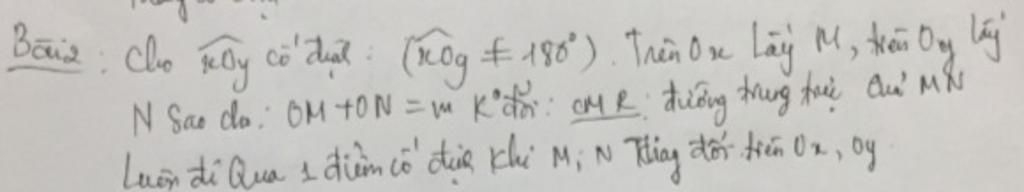 Bài 2: Cho xOy cố định: (xOy ≠ 180°). Trên Ox Lấy M, trên Oy lấy
N Sao cho: OM + ON = m K° đổi: CMR: đường trung trực của MN
Luôn đi Qua 1 điểm cố định khi M, N Thay đổi trên Ox, Oy